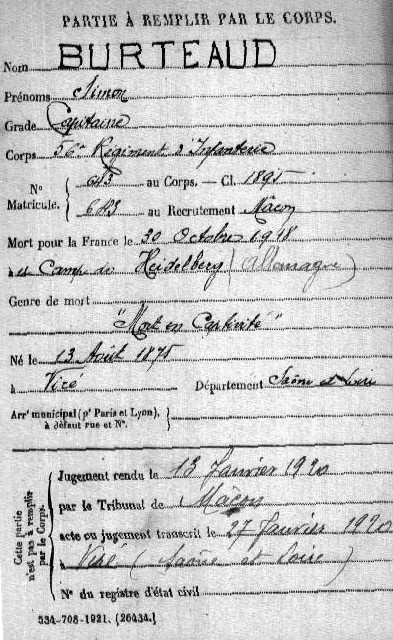 PARTIE À REMPLIR PAR LE CORPS.
Nom BURTEAUD
Prénoms Simon
Grade Capitaine
Corps 56e Régiment d'Infanterie
N° Matricule. { au Corps. — Cl. 1895
au Recrutement Macon
Mort pour la France le 30 Octobre 1918
à Camp de Heidelberg (Allemagne)
Genre de mort
"Mort en Captivité"
Né le 13 Août 1875
à Viré Département Saône et Loire
Arrt municipal (pr Paris et Lyon), à défaut rue et N°. {
Cette partie n'est pas à remplir par le Corps.
Jugement rendu le 13 Janvier 1920
par le Tribunal de Mâcon
acte ou jugement transcrit le 27 février 1920
à Viré (Saône et Loire)
N° du registre d'état civil
534-708-1921. [26434.]